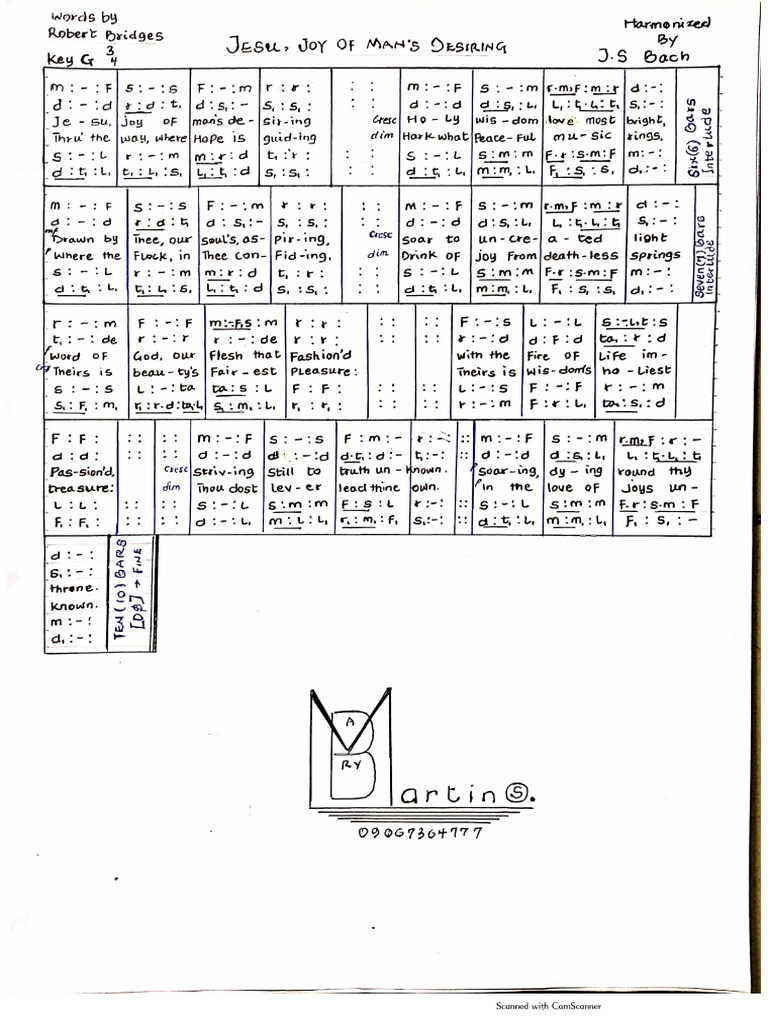 Words by
Robert Bridges
Key G 3/4
JESU, JOY OF MAN'S DESIRING
Harmonized
By
J.S Bach
m : - : F | s : - : s | F : - : m | r : r : | : : | m : - : F | s : - : m | r.m,F : m : r | d : - :
d : - : d | r : d : t, | d : s, : - | s, : s, : | : : | d : - : d | d : s, : L, | L, : t,.L, : t, | s, : - :
Je - su, | Joy of | man's de - | sir-ing | Cresc | Ho - Ly | wis-dom | love most | bright,
Thru' the | way, where | Hope is | guid-ing | dim | Hark what | Peace-ful | mu-sic | rings,
s : - : L | r : - : m | m : r : d | t, : r : | : : | s : - : L | s : m : m | F.r : s.m : F | m : - :
d : t, : L, | t, : L, : s, | L, : t, : d | s, : s, : | : : | d : t, : L, | m, : m, : L, | F, : s, : s, | d, : - :
Six(6) Bars
Interlude
m : - : F | s : - : s | F : - : m | r : r : | : : | m : - : F | s : - : m | r.m,F : m : r | d : - :
d : - : d | r : d : t, | d : s, : - | s, : s, : | : : | d : - : d | d : s, : L, | L, : t,.L, : t, | s, : - :
mf Drawn by | Thee, our | soul's, as- | Pir-ing, | Cresc | soar to | un-cre- | a - ted | light
f where the | Flock, in | Thee con- | Fid-ing, | dim | Drink of | joy From | death-less | springs
s : - : L | r : - : m | m : r : d | t, : r : | : : | s : - : L | s : m : m | F.r : s.m : F | m : - :
d : t, : L, | t, : L, : s, | L, : t, : d | s, : s, : | : : | d : t, : L, | m, : m, : L, | F, : s, : s, | d, : - :
Seven(7) Bars
Interlude
r : - : m | F : - : F | m : -.F,s : m | r : r : | : : | : : | F : - : s | L : - : L | s : -.L,t : s
t, : - : de | r : - : r | r : - : de | r : r : | : : | : : | r : - : m | d : F : d | ta, : r : d
f word of | God, our | Flesh that | Fashion'd | with the | Fire of | Life im-
Theirs is | beau-ty's | Fair-est | Pleasure: | Theirs is | wis-dom's | ho-liest
s : - : s | L : - : ta | ta : s : L | F : F : | : : | : : | L : - : s | F : - : F | r : - : m
s, : F, : m, | r, : r.d : ta,.L, | s, : m, : L, | r, : r, : | : : | : : | r : - : m | F : r : L, | ta, : s, : d
F : F : | : : | : : | m : - : F | s : - : s | F : m : - | r : - : | : : | m : - : F | s : - : m | r.m,F : r : -
d : d : | : : | : : | d : - : d | d : - : d | d.t, : d : - | t, : - : | : : | d : - : d | d : s, : L, | L, : t,.L, : t,
Pas-sion'd, | Cresc | striv-ing | still to | truth un- | Known. | Soar-ing, | dy-ing | round thy
treasure: | dim | Thou dost | lev-er | lead thine | own. | in the | love of | Joys un-
L : L : | : : | : : | s : - : L | s : m : m | F : s : L | r : - : | : : | s : - : L | s : m : m | F.r : s.m : F
F, : F, : | : : | : : | d : - : L, | m : L : L, | r, : m, : F, | s, : - : | : : | d : t, : L, | m, : m, : L, | F, : s, : -
d : - :
s, : - :
throne.
Known.
m : - :
d, : - :
TEN (10) BARS
FINE
M
A
B
RY
artin S.
09067364777
Scanned with CamScanner